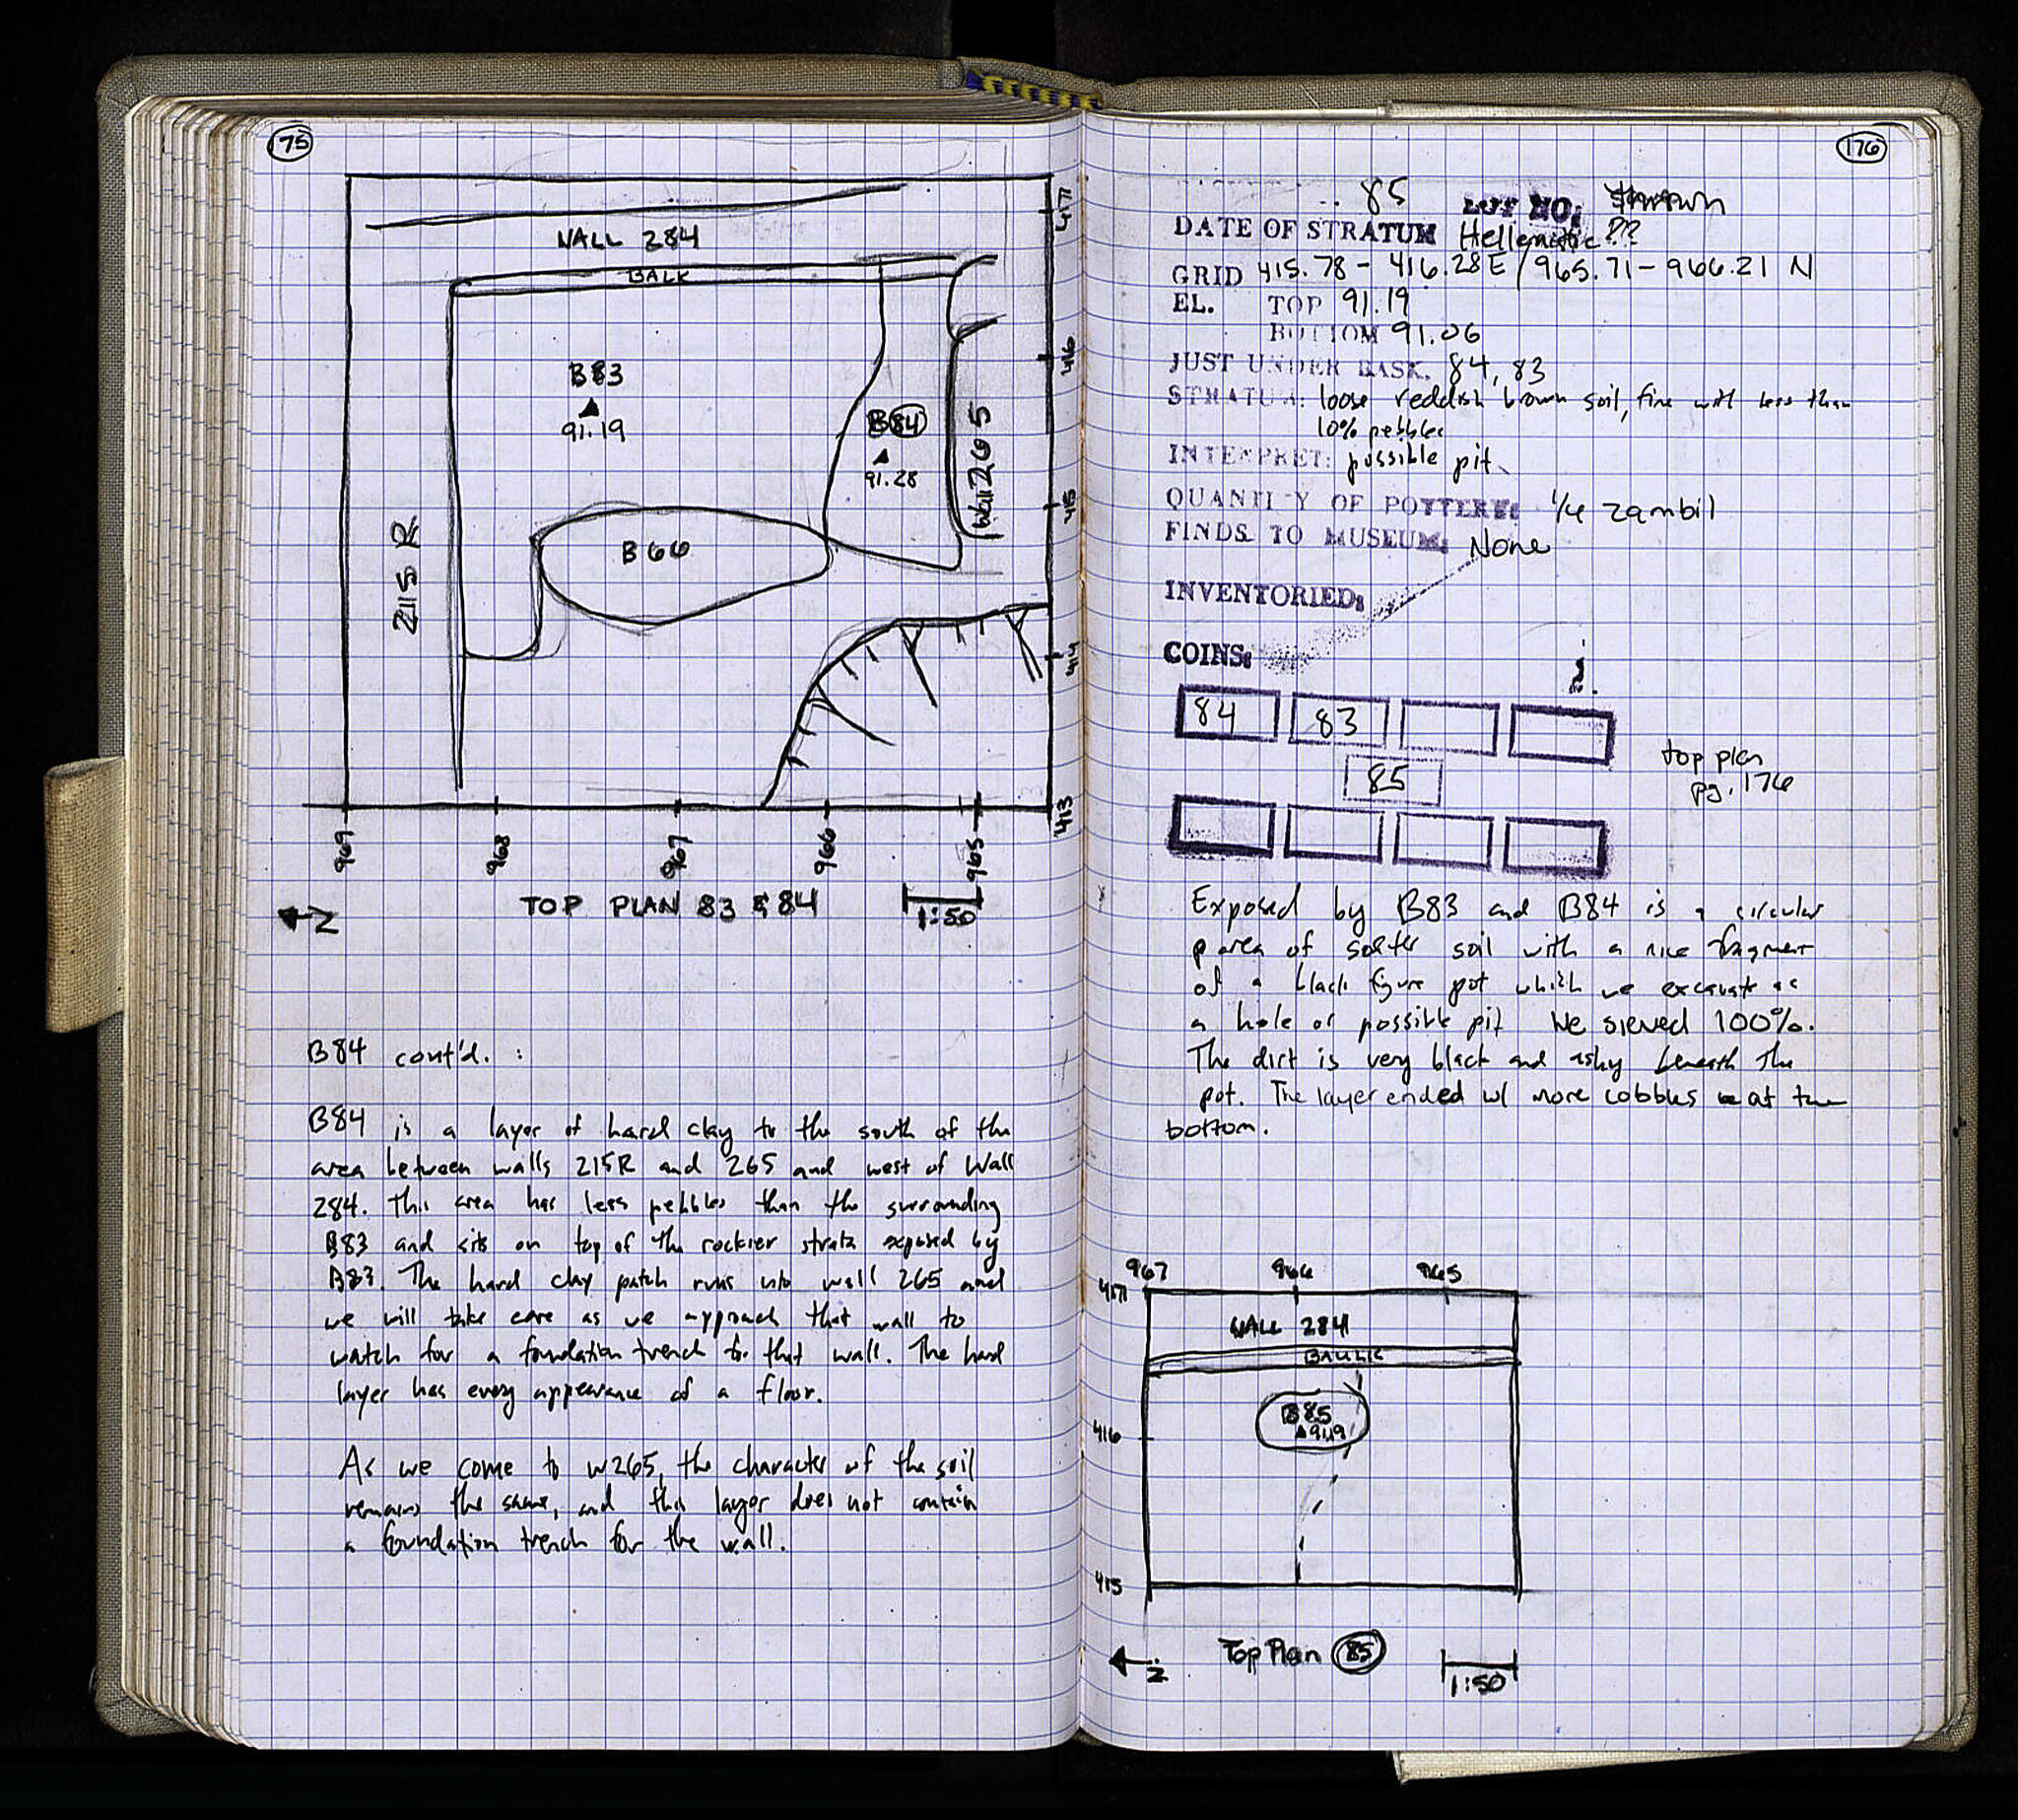 75
417
WALL 284
BALK
416
B83
91.19
B84
91.28
Wall 265
415
B66
215R
414
413
969
968
967
966
965
TOP PLAN 83 & 84
1:50
N
B84 cont'd. :
B84 is a layer of hard clay to the south of the
area between walls 215R and 265 and west of Wall
284. This area has less pebbles than the surrounding
B83 and sits on top of the rockier strata exposed by
B83. The hard clay patch runs into wall 265 and
we will take care as we approach that wall to
watch for a foundation trench for that wall. The hard
layer has every appearance of a floor.
As we come to w265, the character of the soil
remains the same, and this layer does not contain
a foundation trench for the wall.
176
85 LOT NO:
DATE OF STRATUM Hellenistic??
GRID 415.78 - 416.28 E / 965.71 - 966.21 N
EL. TOP 91.19
BOTTOM 91.06
JUST UNDER BASK. 84, 83
STRATUM: loose reddish brown soil, fine with less than
10% pebbles
INTERPRET: possible pit
QUANTITY OF POTTERY: 1/4 zambil
FINDS TO MUSEUM: None
INVENTORIED:
COINS:
84 83
85
top plan
pg. 176
Exposed by B83 and B84 is a circular
area of softer soil with a nice fragment
of a black figure pot which we excavate as
a hole or possible pit We sieved 100%.
The dirt is very black and ashy beneath the
pot. The layer ended w/ more cobbles at the
bottom.
967 966 965
417
WALL 284
BAULK
B85
91.19
416
415
N
Top Plan 85
1:50